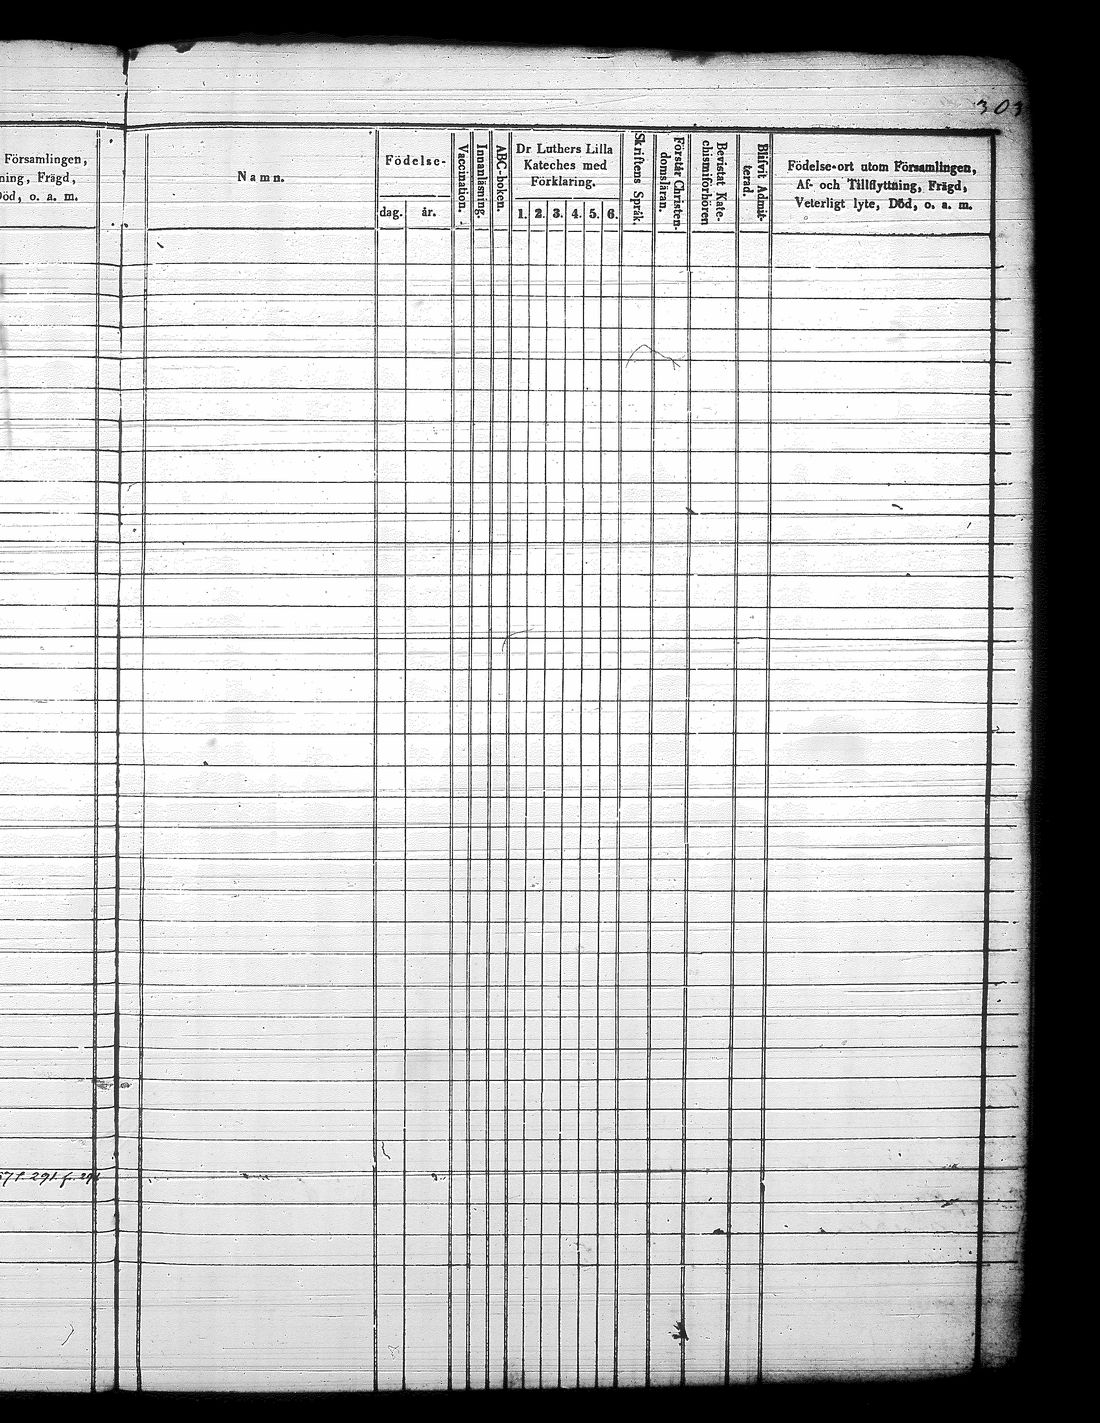 303
Församlingen,
ning, Frägd,
Död, o. a. m.
Namn.
Födelse-
dag. år.
Vaccination.
Innanläsning.
ABC-boken.
Dr Luthers Lilla
Kateches med
Förklaring.
1. 2. 3. 4. 5. 6.
Skriftens Språk.
Förstår Christen-
domsläran.
Bevistat Kate-
chismiförhören
Blifvit Admit-
terad.
Födelse-ort utom Församlingen,
Af- och Tillflyttning, Frägd,
Veterligt lyte, Död, o. a. m.
291 f. 291